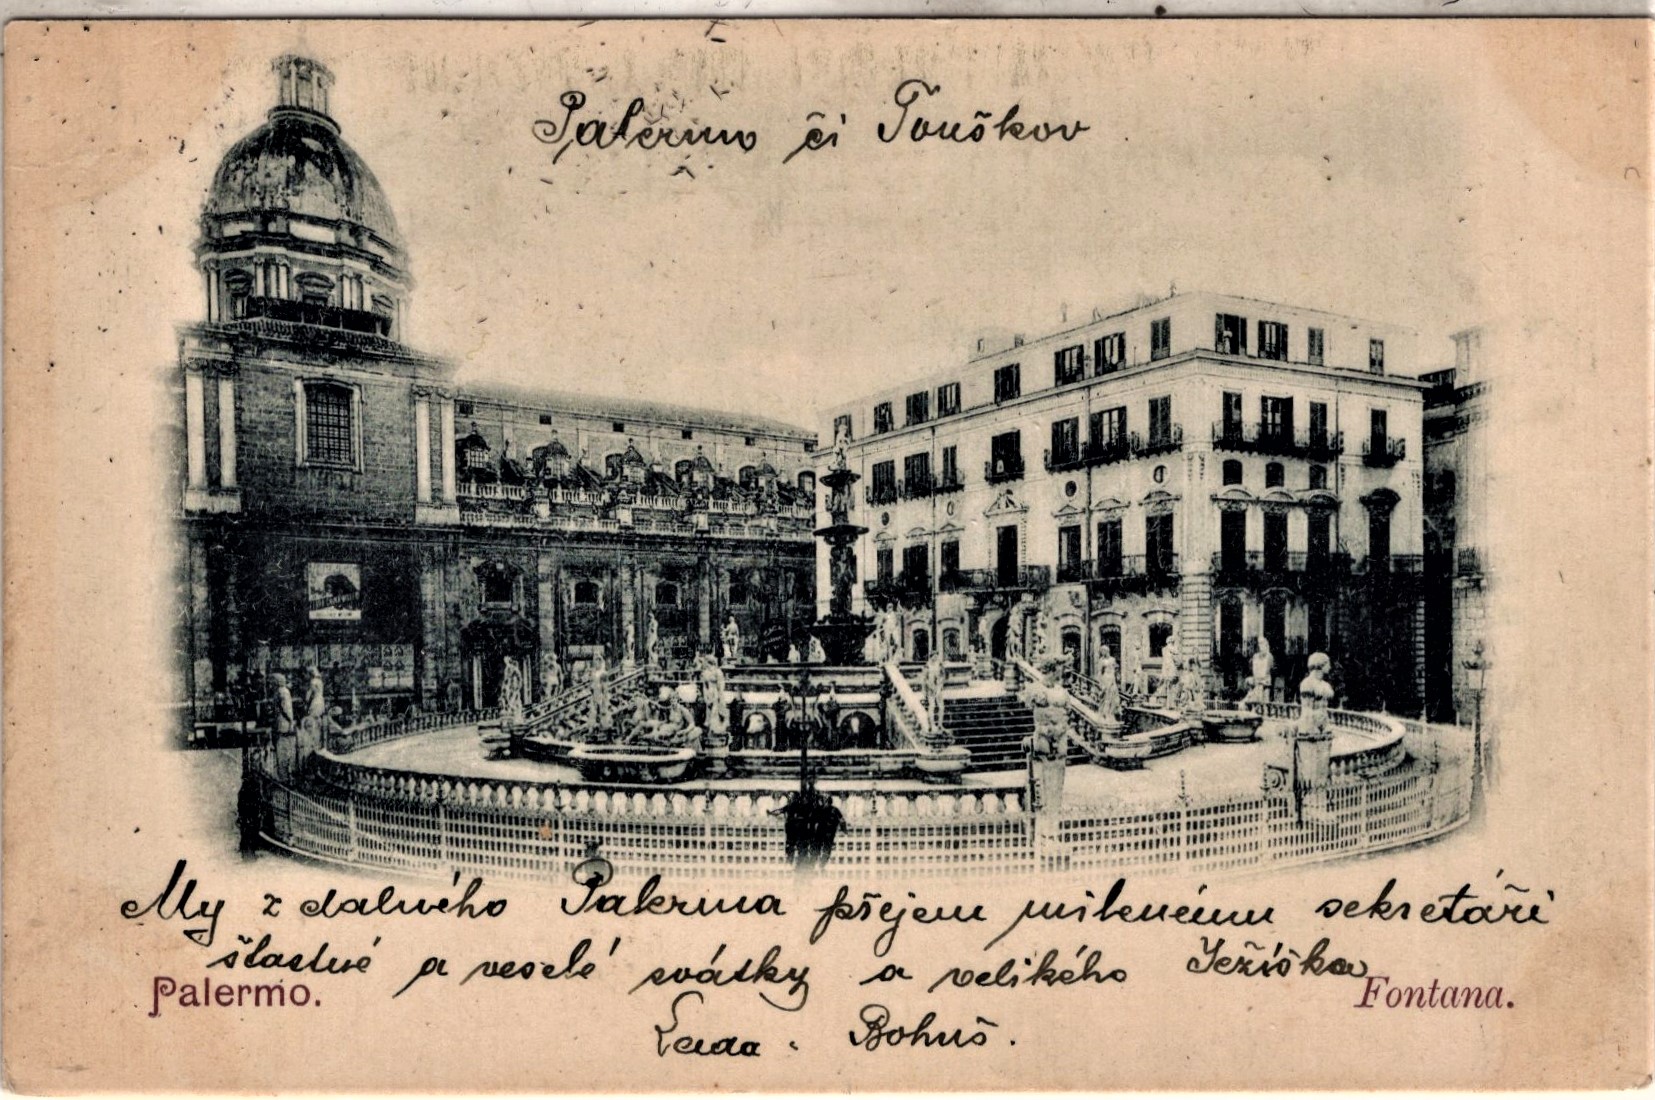 Palermo či Touškov
My z dalného Palerma přejem milenému sekretáři
šťastné a veselé svátky a velikého Ježíška
Palermo.
Fontana.
Bohuš.